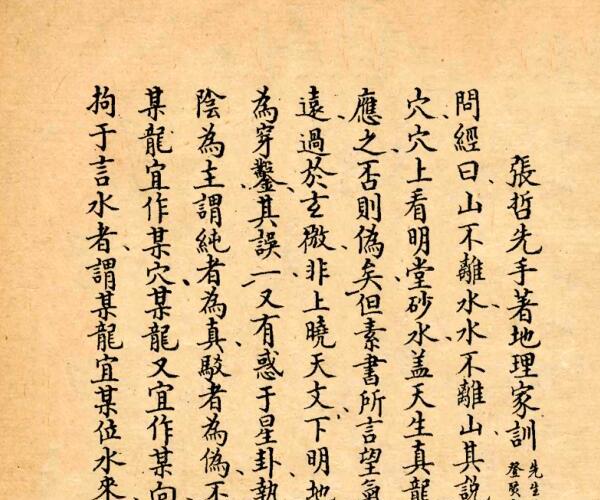 張哲先手著地理家訓
先生
登
問經曰山不離水水不離山其說
穴穴上看明堂砂水盖天生真龍
應之否則偽矣但素書所言望氣
遠過於玄微非上曉天文下明地
為穿鑿其誤一又有惑于星卦執
陰為主謂純者為真駁者為偽不
某龍宜作某穴某龍又宜作某向
拘于言水者謂某龍宜某位水來